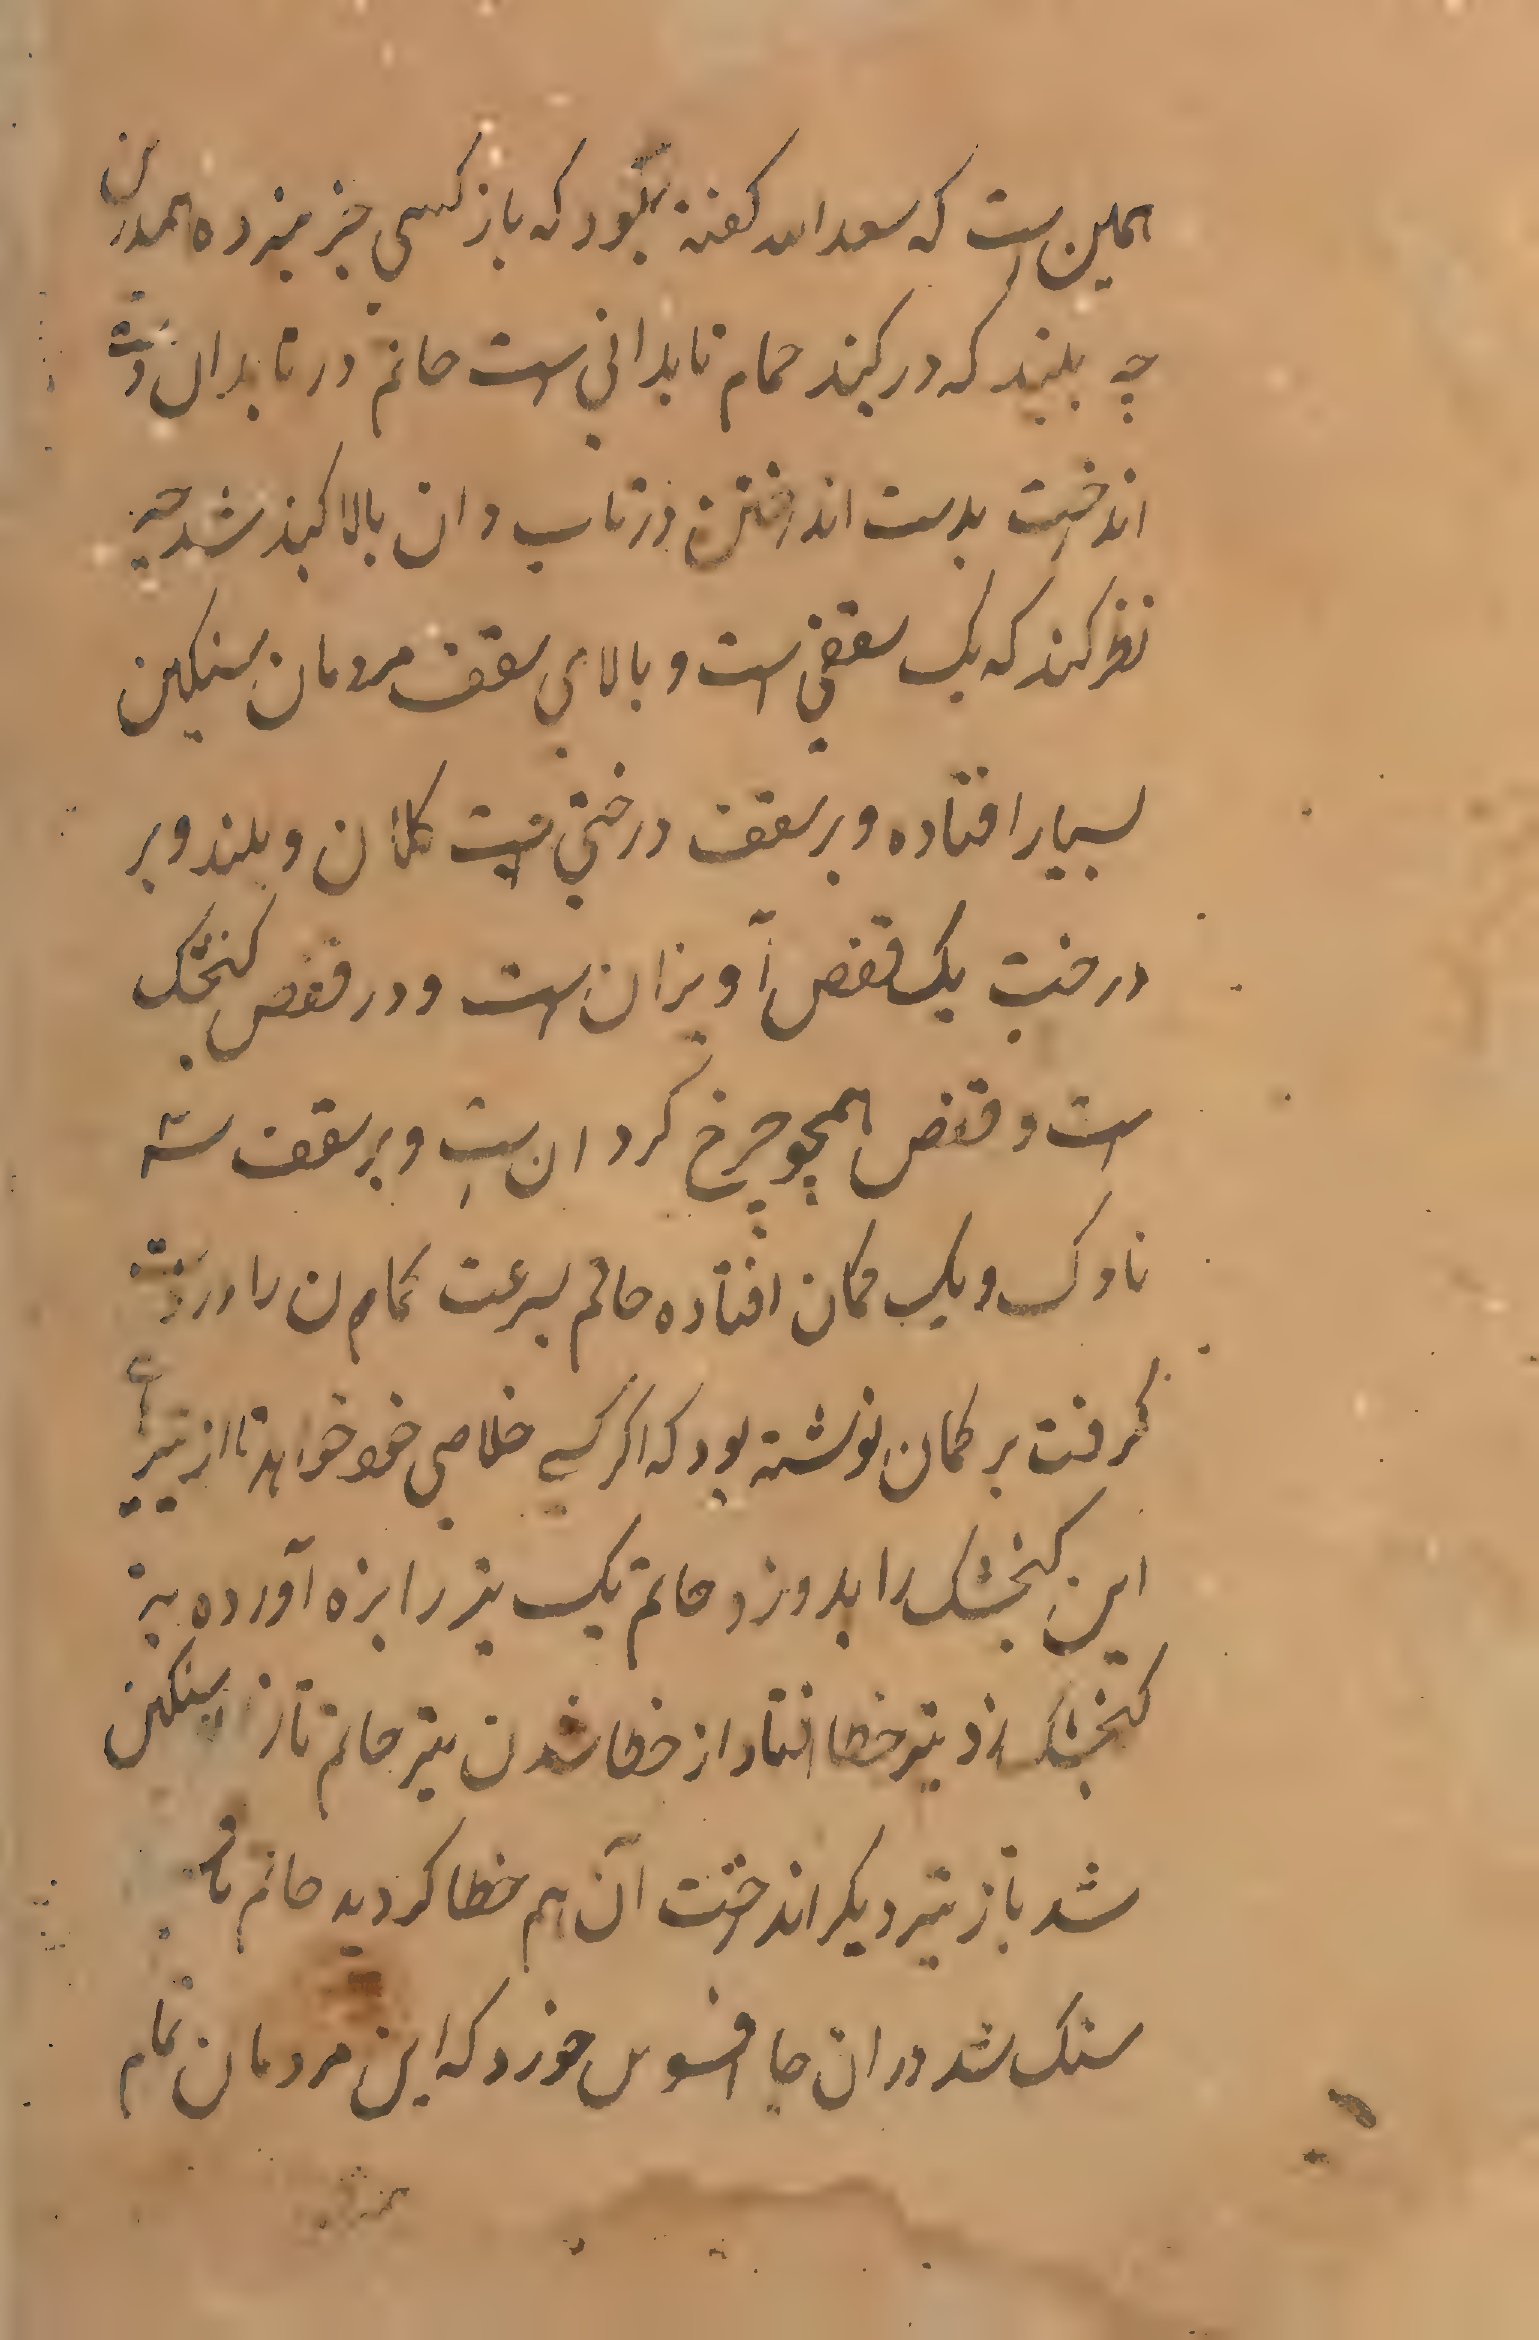 همین است که سعد الله کفته بکود که باز کسی خبر میزده همدرین
چه بیند که در کنبد حمام تابدانی است حاتم در تابدان دست
انداخت بدست انداختن در تاب دان بالا کنبذ شد چه
نظر کند که یک سقفی است و بالای سقف مردمان سنکین
بسیار افتاده و بر سقف درختی است کلان و بلند و بر
درخت یک قفص آویزان است و در قفص کنجشک
است و قفص همچو چرخ کردان ست و بر سقف سه
ناوک و یک کمان افتاده حاتم بسرعت تمام ان را در دست
کرفت بر کمان نوشته بود که اکر کسے خلاصی خود خواهد تا از تیر
این کنجشک را بدوزد حاتم یک تیر را بزه آورده بر
کنجشک زد تیر خطا افتاد از خطا شدن تیر حاتم تا زانو سنکین
شد باز تیر دیکر انداخت آن هم خطا کردید حاتم تا
سنک شد در ان جا افسوس خورد که این مردمان تمام